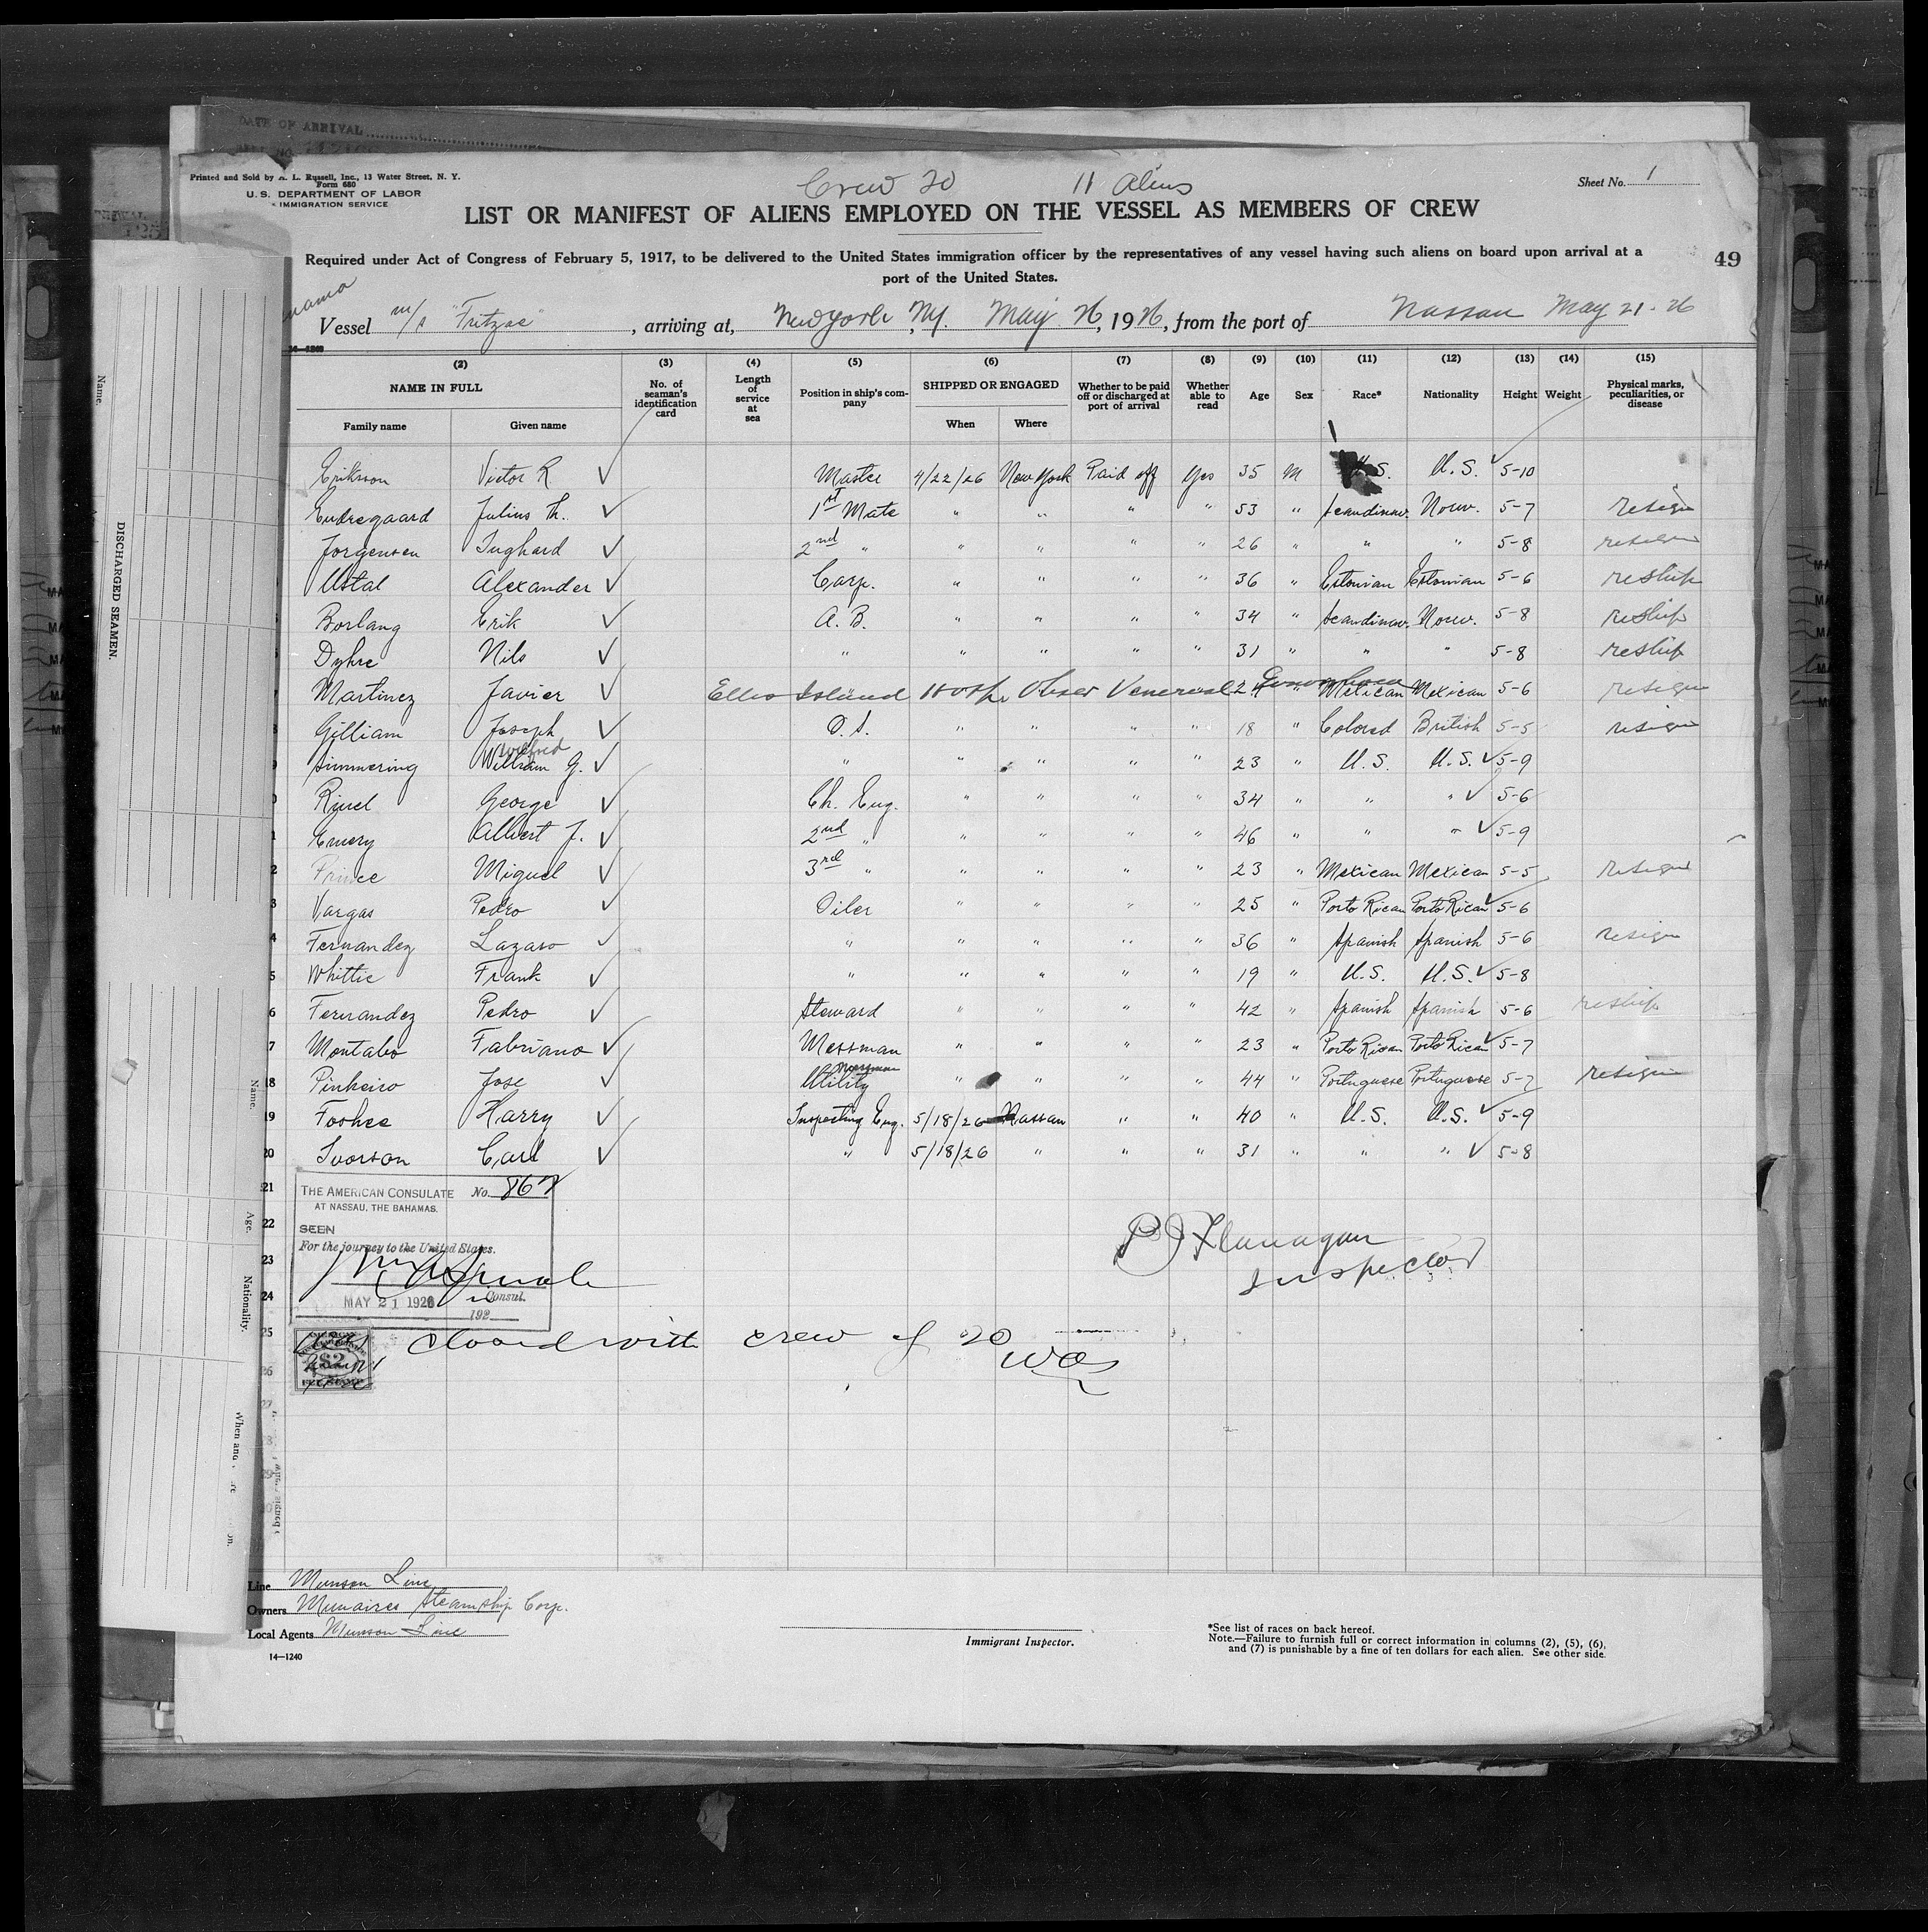 DATE OF ARRIVAL
Printed and Sold by A. L. Russell, Inc., 13 Water Street, N. Y.
Form 680
U. S. DEPARTMENT OF LABOR
IMMIGRATION SERVICE
Crew 20 11 Aliens
Sheet No. 1
LIST OR MANIFEST OF ALIENS EMPLOYED ON THE VESSEL AS MEMBERS OF CREW
Required under Act of Congress of February 5, 1917, to be delivered to the United States immigration officer by the representatives of any vessel having such aliens on board upon arrival at a
port of the United States.
49
Vessel m/s "Fritzoe", arriving at, New York, N.Y. May 26, 1926, from the port of Nassau May 21-26
(2) (3) (4) (5) (6) (7) (8) (9) (10) (11) (12) (13) (14) (15)
NAME IN FULL No. of seaman's identification card Length of service at sea Position in ship's company SHIPPED OR ENGAGED Whether to be paid off or discharged at port of arrival Whether able to read Age Sex Race* Nationality Height Weight Physical marks, peculiarities, or disease
Family name Given name When Where
Erikson Victor R ✓ Master 4/22/26 New York Paid off Yes 35 M U.S. U.S. ✓ 5-10
Endregaard Julius Th. ✓ 1st Mate " " " " 53 " Scandinav. Norw. 5-7 resign
Jorgensen Inghard ✓ 2nd " " " " " 26 " " " 5-8 resign
Ustal Alexander ✓ Carp. " " " " 36 " Estonian Estonian 5-6 reship
Borlang Erik ✓ A. B. " " " " 34 " Scandinav. Norw. 5-8 reship
Dyhre Nils ✓ " " " " " 31 " " " 5-8 reship
Martinez Javier ✓ Ellis Island Hosp. Obser Venereal Gonorrhoea " Mexican Mexican 5-6 resign
Gilliam Joseph ✓ O. S. " " " " 18 " Colored British 5-5 resign
Simmering Wilfred William G. ✓ " " " " " 23 " U.S. U.S. ✓ 5-9
George ✓ Ch. Eng. " " " " 34 " " " ✓ 5-6
Emery Albert J. ✓ 2nd " " " " " 46 " " " ✓ 5-9
2 Prince Miguel ✓ 3rd " " " " " 23 " Mexican Mexican 5-5 resign
3 Vargas Pedro ✓ Oiler " " " " 25 " Porto Rican Porto Rican ✓ 5-6
4 Fernandez Lazaro ✓ " " " " " 36 " Spanish Spanish 5-6 resign
5 Whittie Frank ✓ " " " " " 19 " U.S. U.S. ✓ 5-8
6 Fernandez Pedro ✓ Steward " " " " 42 " Spanish Spanish 5-6 reship
7 Montabo Fabriano ✓ Messman " " " " 23 " Porto Rican Porto Rican ✓ 5-7
18 Pinheiro Jose ✓ Utility Messman " " " " 44 " Portuguese Portuguese 5-7 resign
19 Foshee Harry ✓ Inspecting Eng. 5/18/26 Nassau " " 40 " U.S. U.S. ✓ 5-9
20 Ivorson Carl ✓ " 5/18/26 " " " 31 " " " ✓ 5-8
21
22
23
24
25
THE AMERICAN CONSULATE No. 867
AT NASSAU, THE BAHAMAS.
SEEN
For the journey to the United States.
MAY 21 1926
Consul.
192
P J Flanagan
Inspector
Closed with crew of 20
DISCHARGED SEAMEN.
Name.
Name.
Age.
Nationality.
Line Munson Line
Owners Munaires Steamship Corp.
Local Agents Munson Line
14—1240
Immigrant Inspector.
*See list of races on back hereof.
Note.—Failure to furnish full or correct information in columns (2), (5), (6),
and (7) is punishable by a fine of ten dollars for each alien. See other side.